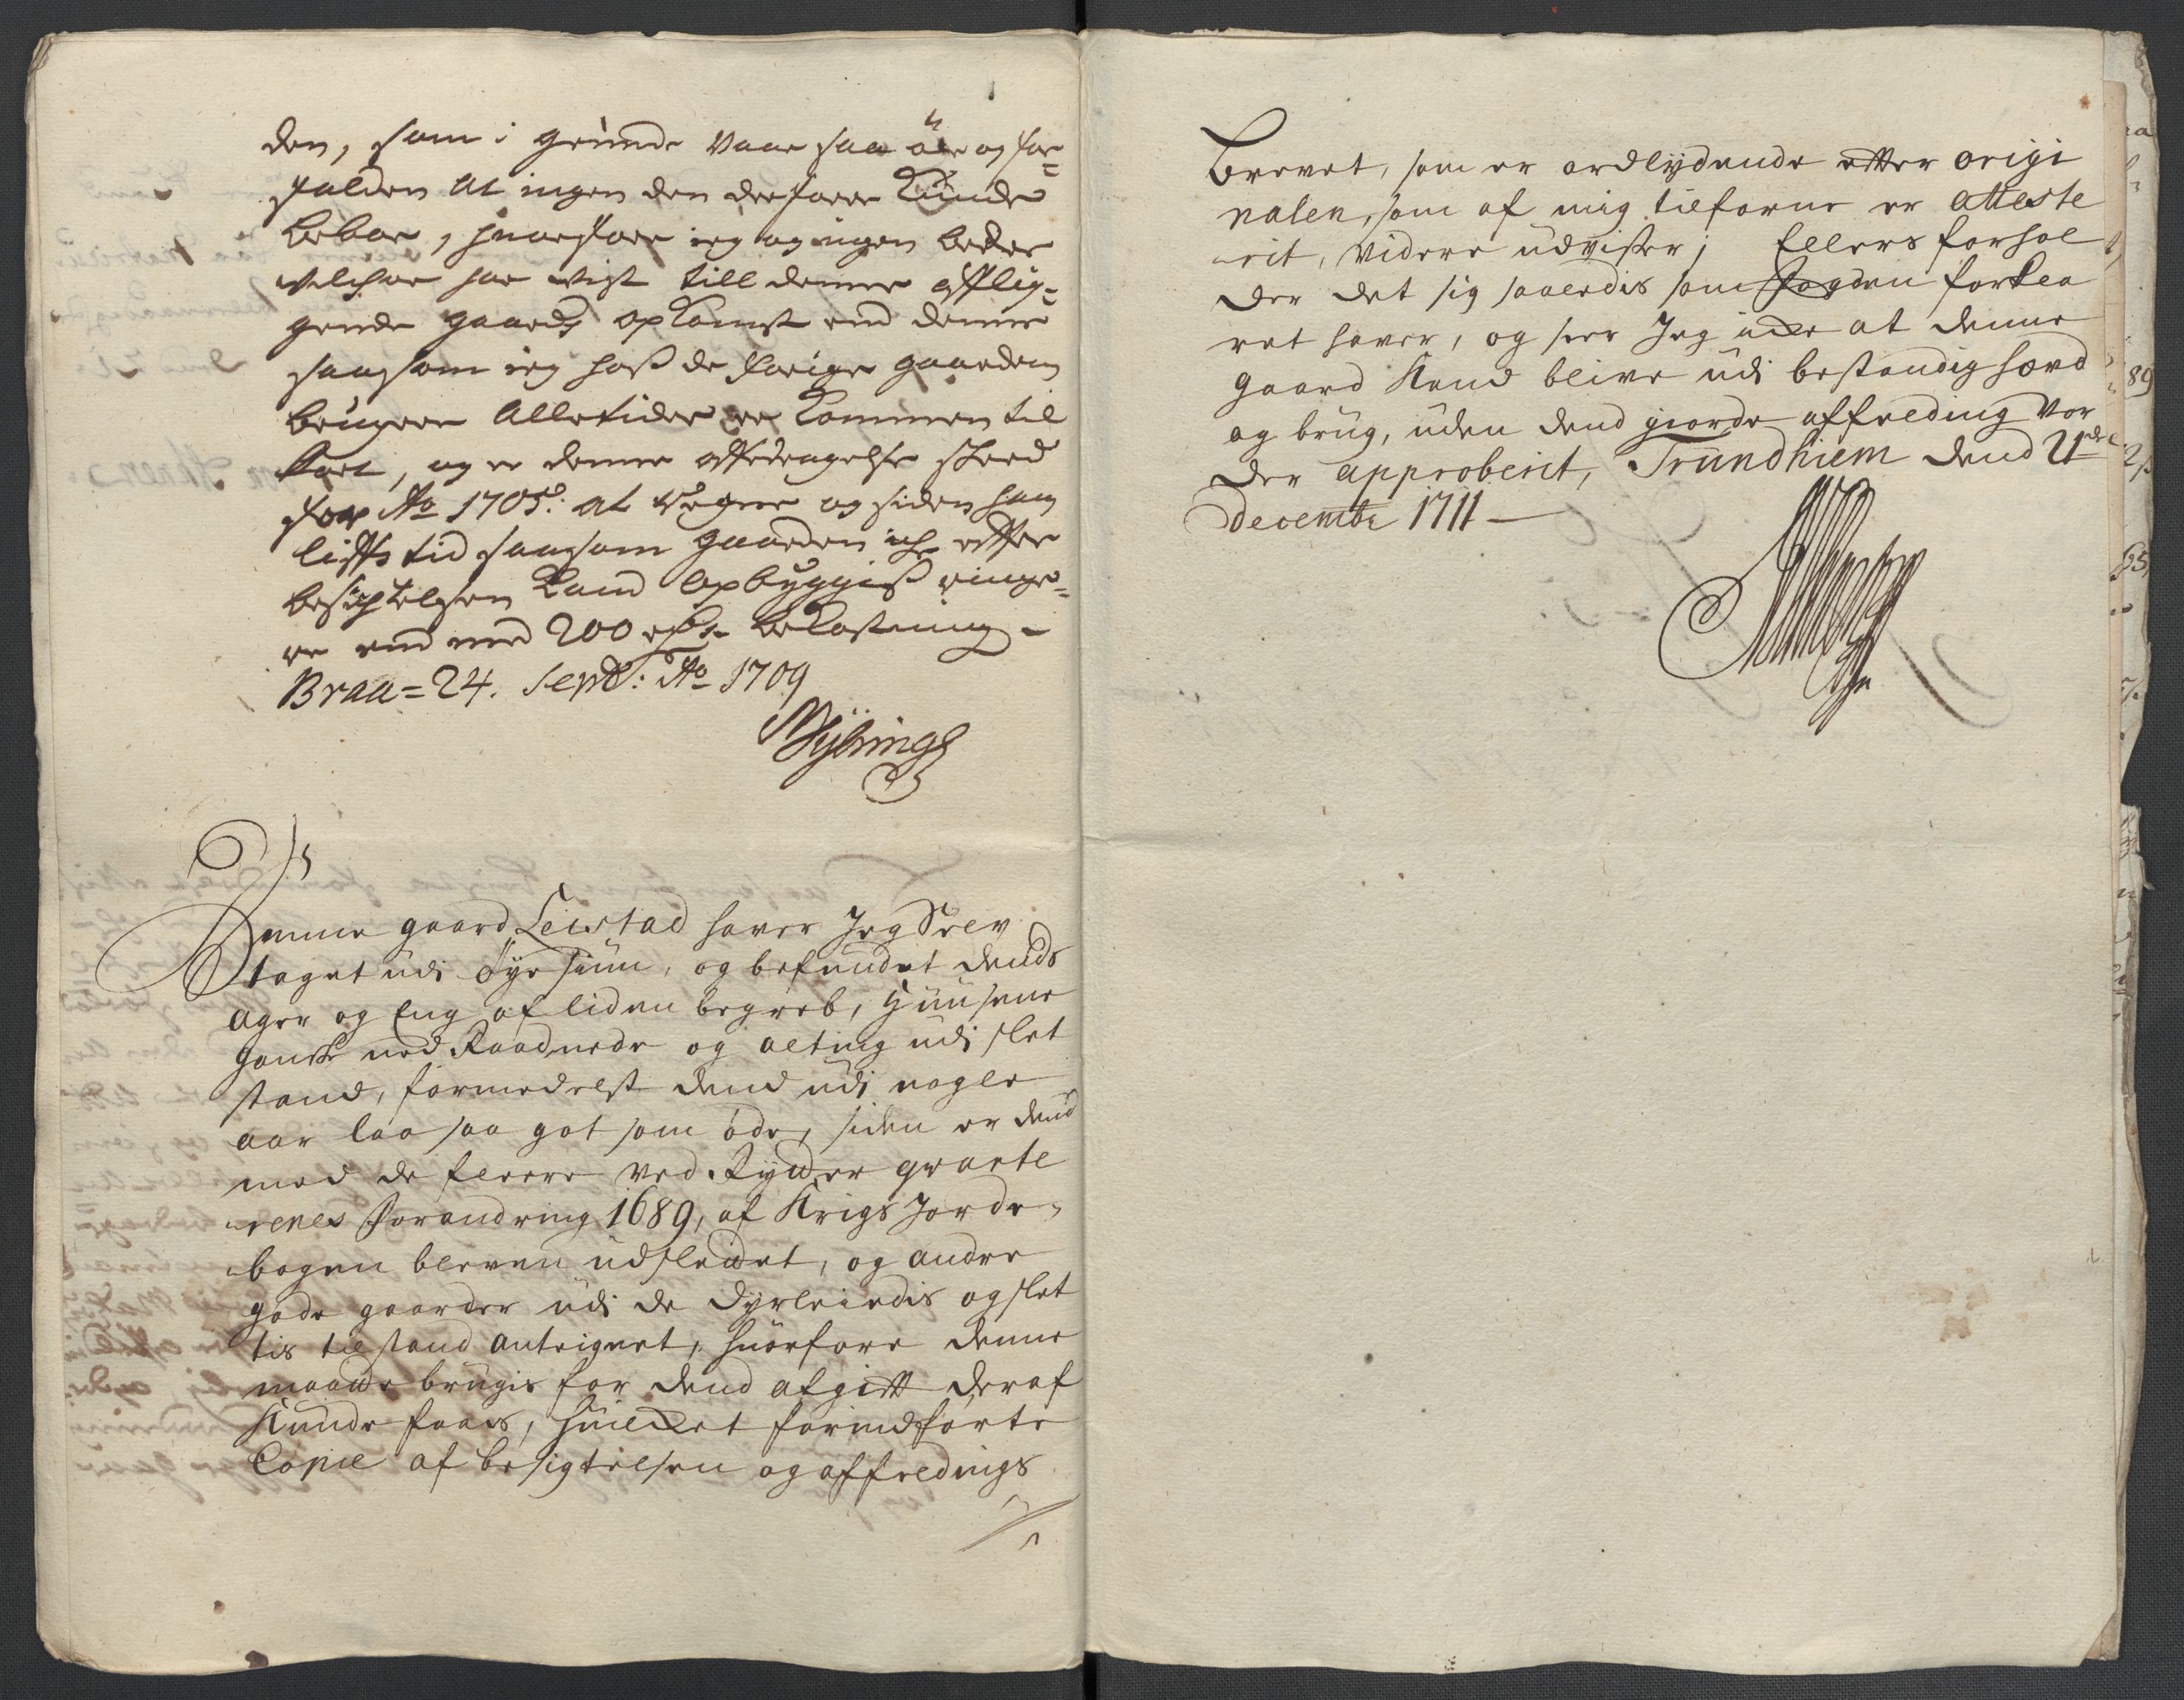 den, som i grunde vaar saa øde og for=
falden at ingen den derforre kunde
beboe, huorfore ieg og ingen beder
velhar har vist till denne afflig=
gende gaards opkomst end denne
saasom ieg hoss de forige gaardens
brugere alletider er kommen til
kort, og er denne affdragelse skeed
for Ao 1705: at regne og siden hans
liffs tid saasom gaarden iche effter
besichtelsen kand opbyggis ringe=
re end med 200 rdr bekostning -
Braa = 24. Septb: Ao 1709
Mÿhring
Denne gaard Leistad haver Jeg Self
taget udi Øyesiun, og befundet dends
ager og Eng af liden begreb, Huusene
ganske ned Raadnede og alting udi slet
stand, formedelst dend udi nogle
aar laa saa got som øde, siden er dend
med de fleere ved Rytter qvarte
renes forandring 1689, af Krigs Jorde,
bogen bleven udslettet, og andre
gode gaarder udi de dyrleiedis og slet
tis tilstand antegnet, huorfore denne
maatte brugis for dend afgift deraf
Kunde faaes, huilcket forindførte
Copie af besigtelsen og affældings
Brevet, som er ordlÿdende efter origi
nalen, som af mig tilforne er atteste
rit, videre udviser; Ellers forhol
der det sig saaledis som fogden forkla
ret haver, og seer Jeg icke at denne
gaard Kand blive udi bestandig hævd
og brug, uden dend giorde affælding vor
der approberit, Trundhiem dend 21de
decembr 1711 —